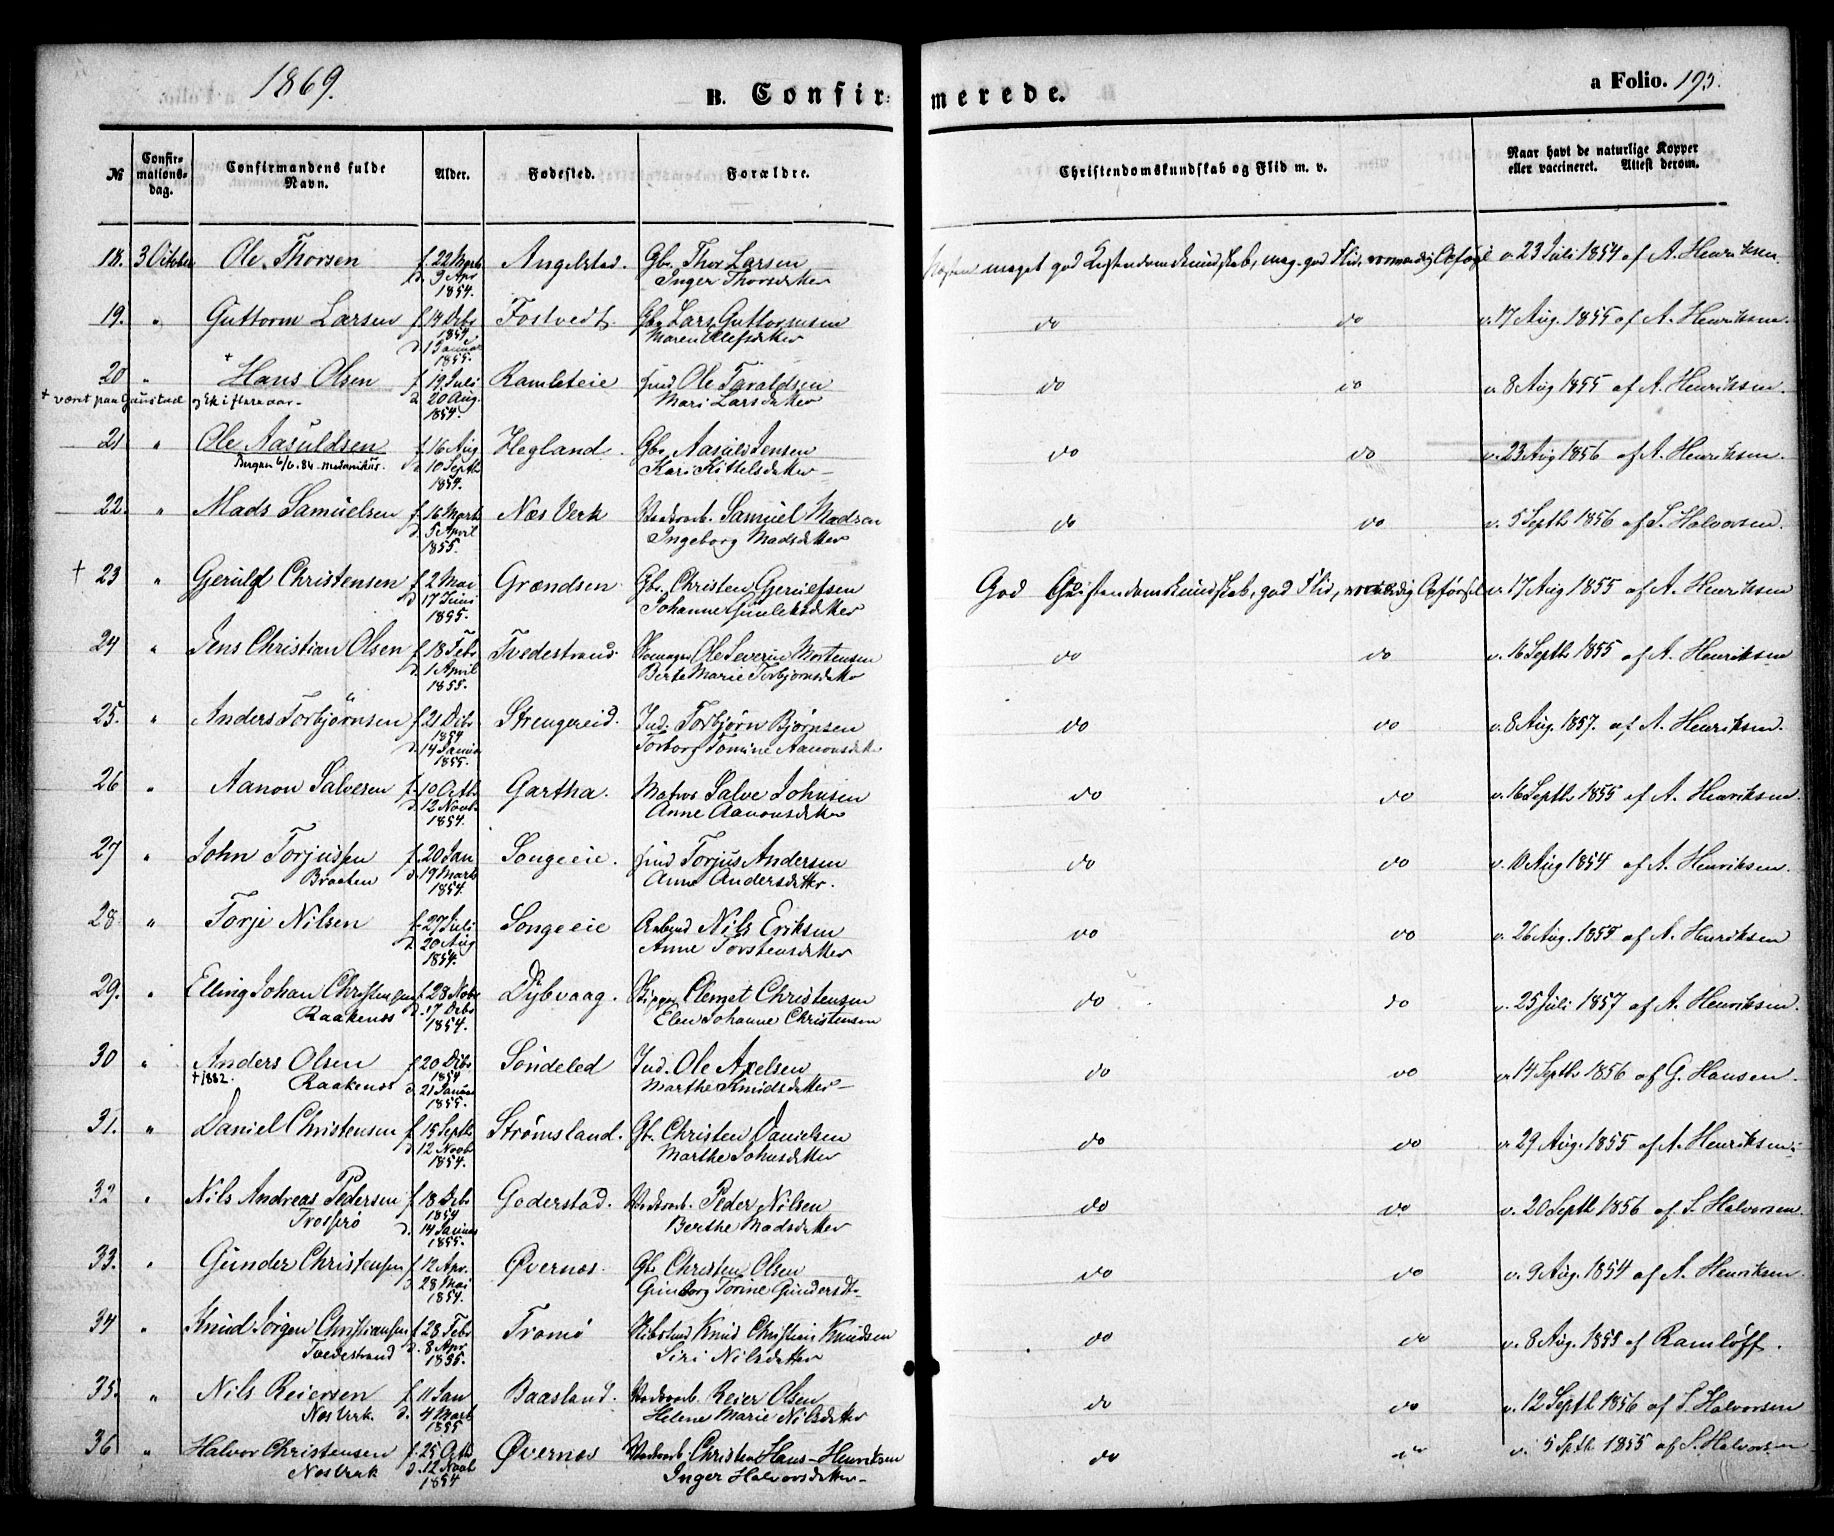 1869.
B. Confirmerede.
a Folio. 193.
№
Confirmationsdag.
Confirmandens fulde Navn.
Alder.
Fødested.
Forældre.
Christendomskundskab og Flid m. v.
Naar havt de naturlige Kopper eller vaccineret. Attest derom.
18. 3 Octobr Ole Thorsen f. 22 Marts d. 9 Apr 1854. Angelstad. Gbr. Thor Larsen Inger Thorsdatter
Næsten meget god Kristendomskundskab, meg. god Flid, v. 23 Juli 1854 af A. Henriksen
19. " Guttorm Larsen f. 14 Decbr 1854 d. 1 Januar 1855. Fostvedt Gbr. Lars Guttormsen Maren Olefsdatter
do do v. 17 Aug. 1855 af A. Henriksen.
20 " + Hans Olsen f. 19 Juli d. 20 Aug. 1854. Ramleteie Ind. Ole Taraldsen Mari Larsdatter
+ været paa Gaustad
do do v. 8 Aug 1855 af A. Henriksen.
21 " Ole Aasuldsen f. 16 Aug d. 10 Septb 1854. Hegland. Gbr. Aasuld Jensen Kari Kittelsdatter
Bergen 6/6. 84
do do v. 23 Aug 1856 af A. Henriksen.
22. " Mads Samuelsen f. 16 Marts d. 5 April 1855. Næs Verk Samuel Madsen Ingeborg Madsdatter
do do v. 5 Septb 1856 af S. Halvorsen.
+ 23 " Gerulf Christensen f. 2 Mai d. 17 Juni 1855. Grændsen Gbr. Christen Gerulfsen Johanne Gunleksdatter
God Christendomskundskab, god Flid, Opførsel v. 17 Aug 1855 af A. Henriksen
24 " Jens Christian Olsen f. 18 Febr d. 1 April 1855. Tvedestrand. Ole Severin Mortensen Berte Marie Torbjørnsdatter
do do v. 16 Septb 1855 af A. Henriksen
25. " Anders Torbjørnsen f. 21 Decbr 1854 d. 14 Januar 1855. Strengereid. Ind. Torbjørn Bjørnsen Torborg Tomine Aanonsdatter
do do v. 8 Aug. 1857. af A. Henriksen.
26 " Aanon Salvesen f. 10 Octb. d. 12 Novbr 1854. Gartha. Matros Salve Johnsen Anne Aanonsdatter
do do v. 16 Septb 1855 af A. Henriksen.
27 " John Torjussen Braaten f. 20 Jan d. 19 Marts 1854. Songeeie. Ind Torjus Andersen Anne Andersdatter.
do do v. 10 Aug 1854 af A. Henriksen.
28 " Torje Nilsen f. 27 Juli d. 20 Aug 1854. Songeeie Nils Eriksen Anne Torstensdatter
do do v. 26 Aug. 1855 af A. Henriksen
29. " Elling Johan Christensen Raakenæs f. 28 Novbr d. 17 Decbr 1854. Dybvaag. Skipper Clemet Christensen Elen Johanne Christensen
do do v. 25 Juli 1857 af A. Henriksen
30 " Anders Olsen Raakenæs f. 20 Decbr 1854 d. 21 Januar 1855. Søndeled Ind. Ole Axelsen Marthe Knudsdatter
+ 1882.
do do v. 14 Septb 1856 af G. Hansen.
31. " Daniel Christensen f. 15 Septb d. 12 Novbr 1854. Strømsland. Gbr. Christen Danielsen Marthe Johnsdatter
do do v. 29 Aug. 1855 af A. Henriksen
32 " Nils Andreas Pedersen f. 18 Decbr 1854 d. 14 Januar 1855. Goderstad. Peder Nilsen Berthe Madsdatter
do do v. 20 Septb 1856 af S. Halvorsen.
33. " Gunder Christensen f. 12 Apr. d. 28 Mai 1854. Øvernæs. Gbr Christen Olsen Gunborg Torine Gundersdt.
do do v. 9 Aug. 1854 af A. Henriksen.
34 " Knud Jørgen Christiansen Tvedestrand f. 28 Febr d. 8 Apr 1855. Tromø Knud Christian Knudsen Siri Nilsdatter
do do v. 8 Aug. 1855 af Ramløff.
35. " Nils Reiersen Næs Verk. f. 11 Jan d. 4 Marts 1855 Baasland. Reier Olsen Helene Marie Nilsdatter
do do v. 12 Septb 1856 af S. Halvorsen
36 " Halvor Christensen Næs Verk f. 25 Octb d. 12 Novbr 1854 Øvernæs Christen Hans-Henriksen Inger Halvorsdatter
do do v. 5 Septb 1855 af S. Halvorsen